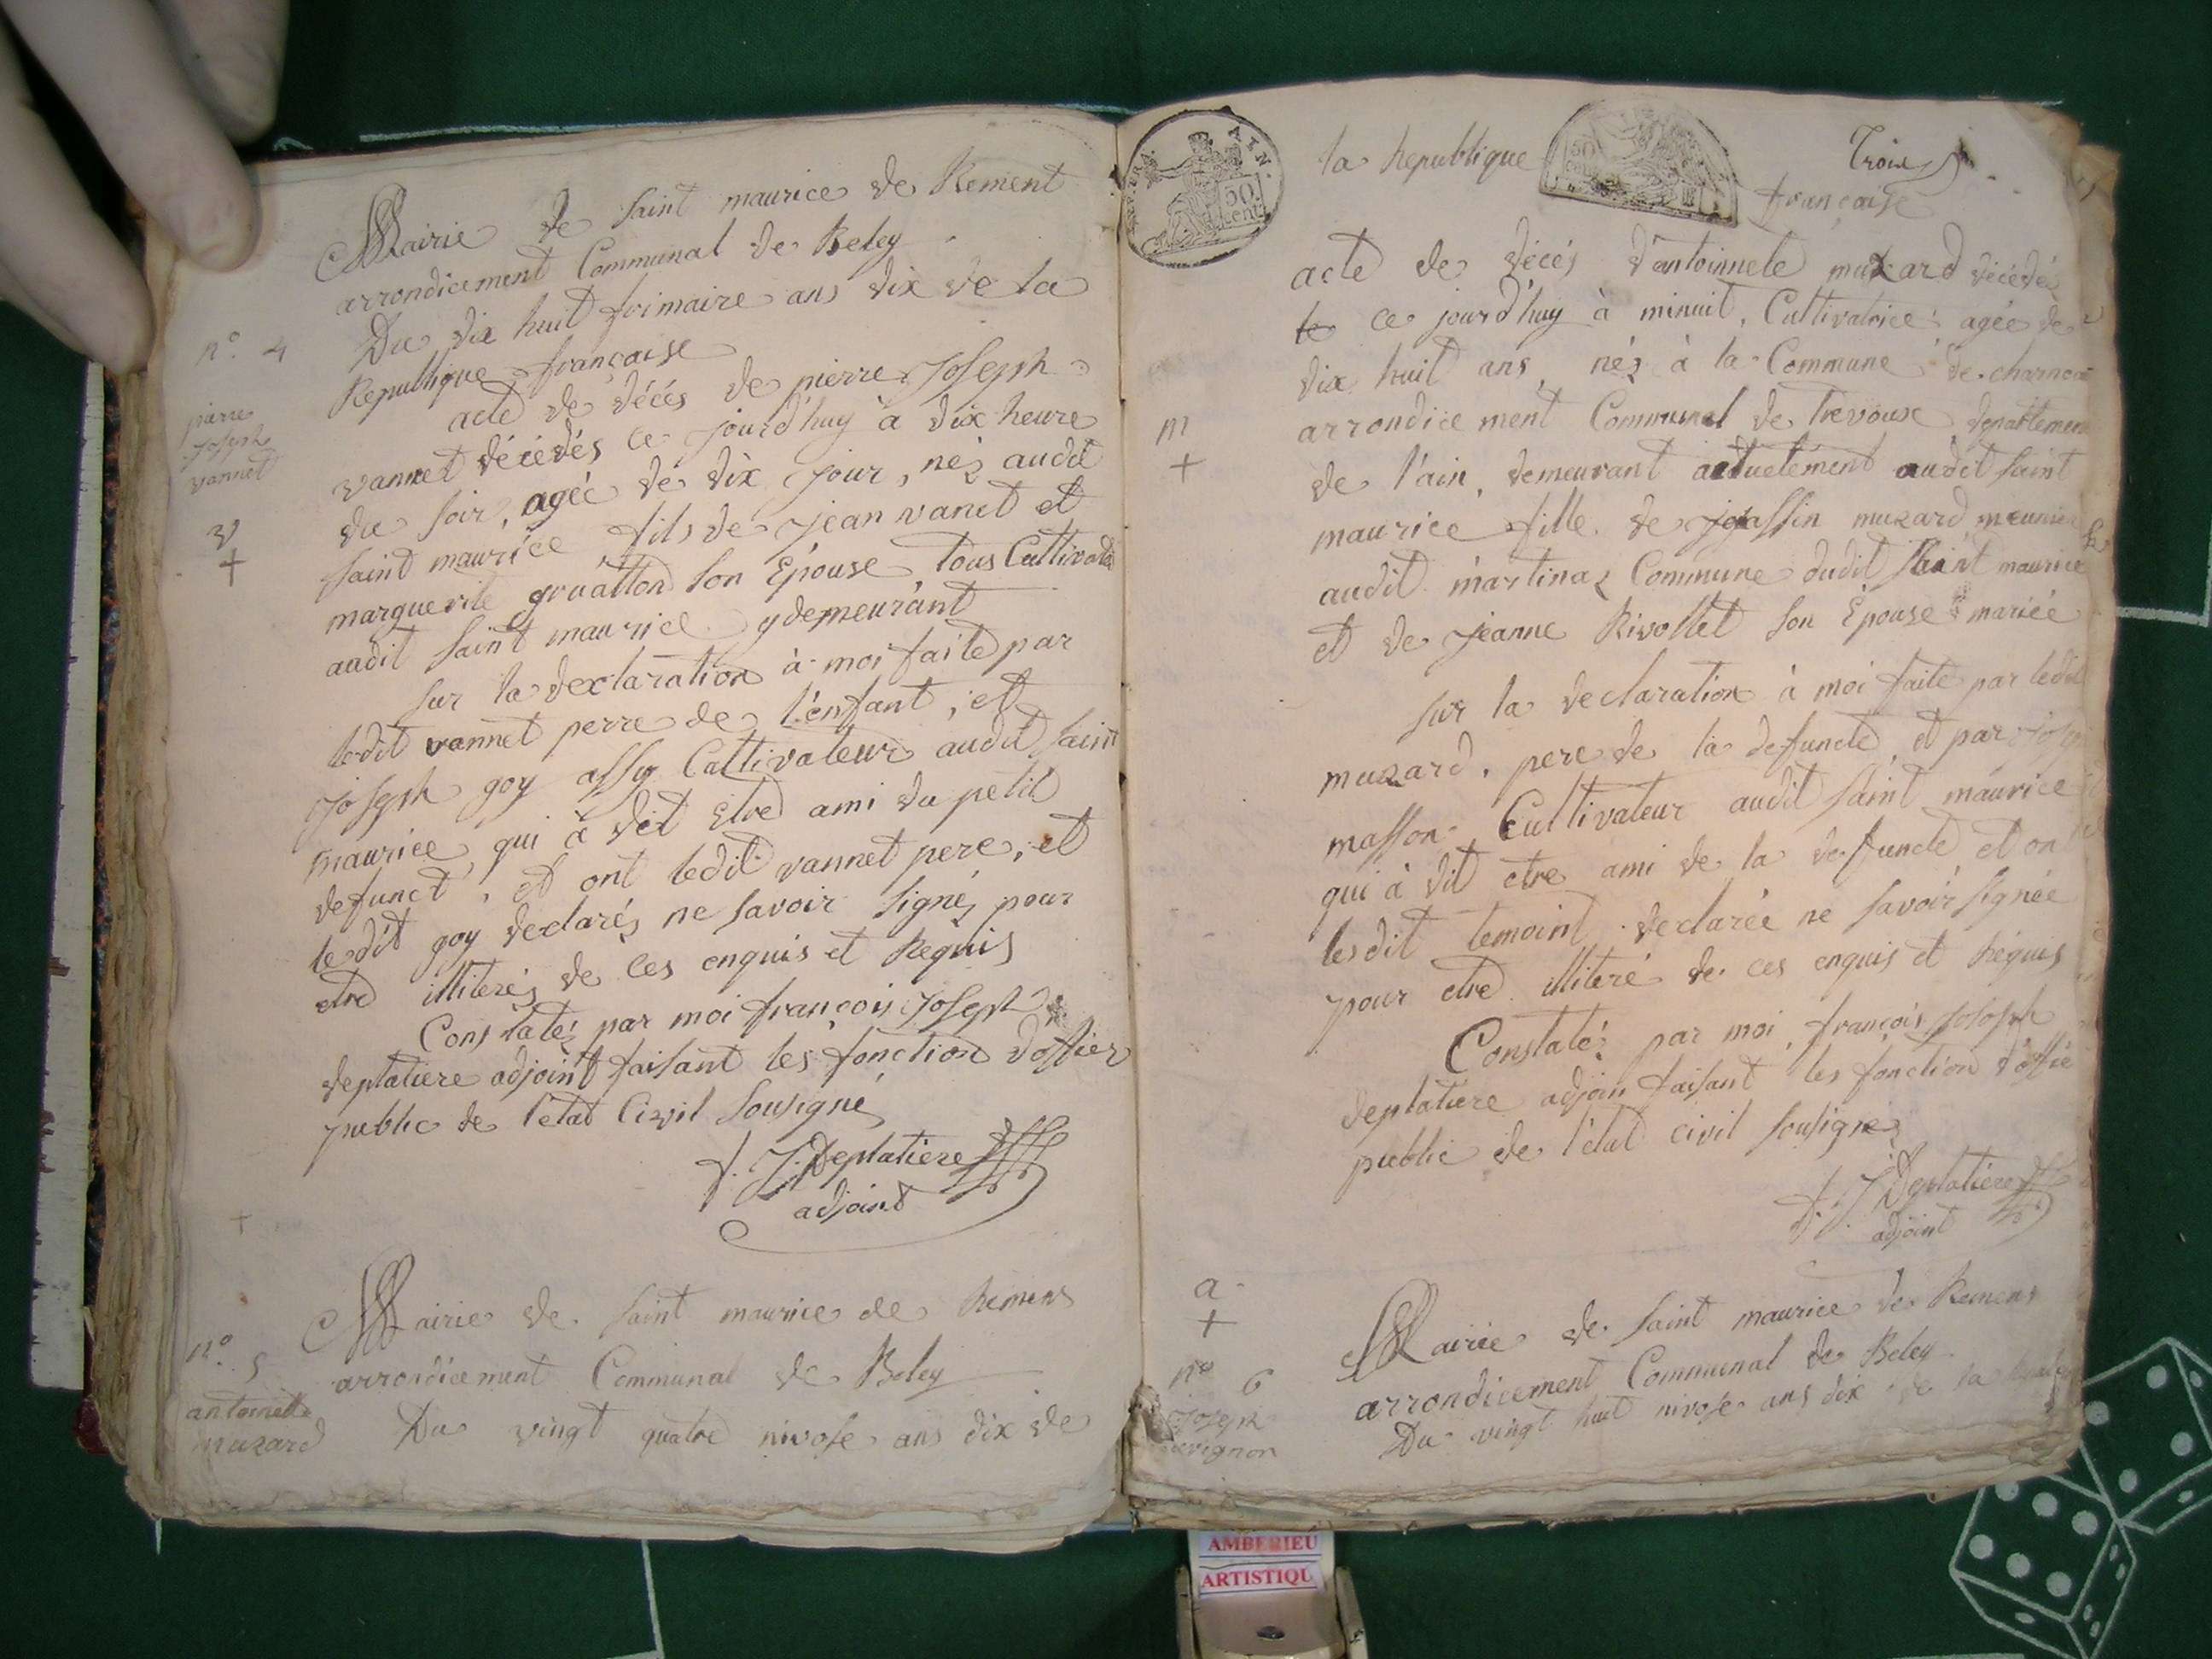 Mairie de saint maurice de Rement
arrondicement Communal de Beley
n.º 4
Du dix huit frimaire ans dix de la
Republique française
pierre
Joseph
vannet
acte de décés de pierre Joseph
vannet décédés ce jourd'huy à dix heure
du soir, agée de dix jour, néz audit
v
+
saint maurice fils de jean vanet et
marguerite gruatton son Epouse tous
audit saint maurice y demeurant
sur la dexlaration à moi faite par
ledit vannet perre de l'enfant, et
Joseph goy assy Cultivateur audit saint
maurice, qui à dit Etre ami du petit
defunct, et ont ledit vannet pere, et
ledit goy declaréz ne savoir signéz pour
etre illiteréz de ces enquis et Requis
Constatéz par moi françois Joseph
deplatiere adjoint faisant les fonction d'offier
public de l'etat Civil sousigné
f. J. Deplatiere
adjoint
+
Mairie de saint maurice de Remens
n.º 5
arrondicement Communal de Beley
antoinette
muzard
Du vingt quatre nivose ans dix de
AIN.
50.
cent.
la Republique
50
Troix
française
acte de décés d'antoinnete muzard décédéz
le ce jourd'huy à minuit, Cultivatrice agée de
dix huit ans, néz à la Commune de
m
+
arrondicement Communal de Trevoux departement
de l'ain, demeurant actuelément audit saint
maurice fille de muzard meunier
audit martinaz Commune dudit saint maurice
et de jeanne Rivollet son Epouse mariée
sur la declaration à moi faite par ledit
muzard, pere de la defuncte, et par
masson Cultivateur audit saint maurice
qui à dit etre ami de la defuncte et on
lesdit temoint declarée ne savoir signée
pour etre illiteré de ces enquis et Réquis
Constatéz par moi, françois Joseph
deplatiere adjoin faisant les fonction d'offié
public de l'état civil sousignez
f. J. Deplatiere
adjoint
a
+
Mairie de saint maurice de Remens
n.º 6
arrondicement Communal de Beley
Joseph
Du vingt huit nivose ans dix de la
AMBERIEU
ARTISTIQU